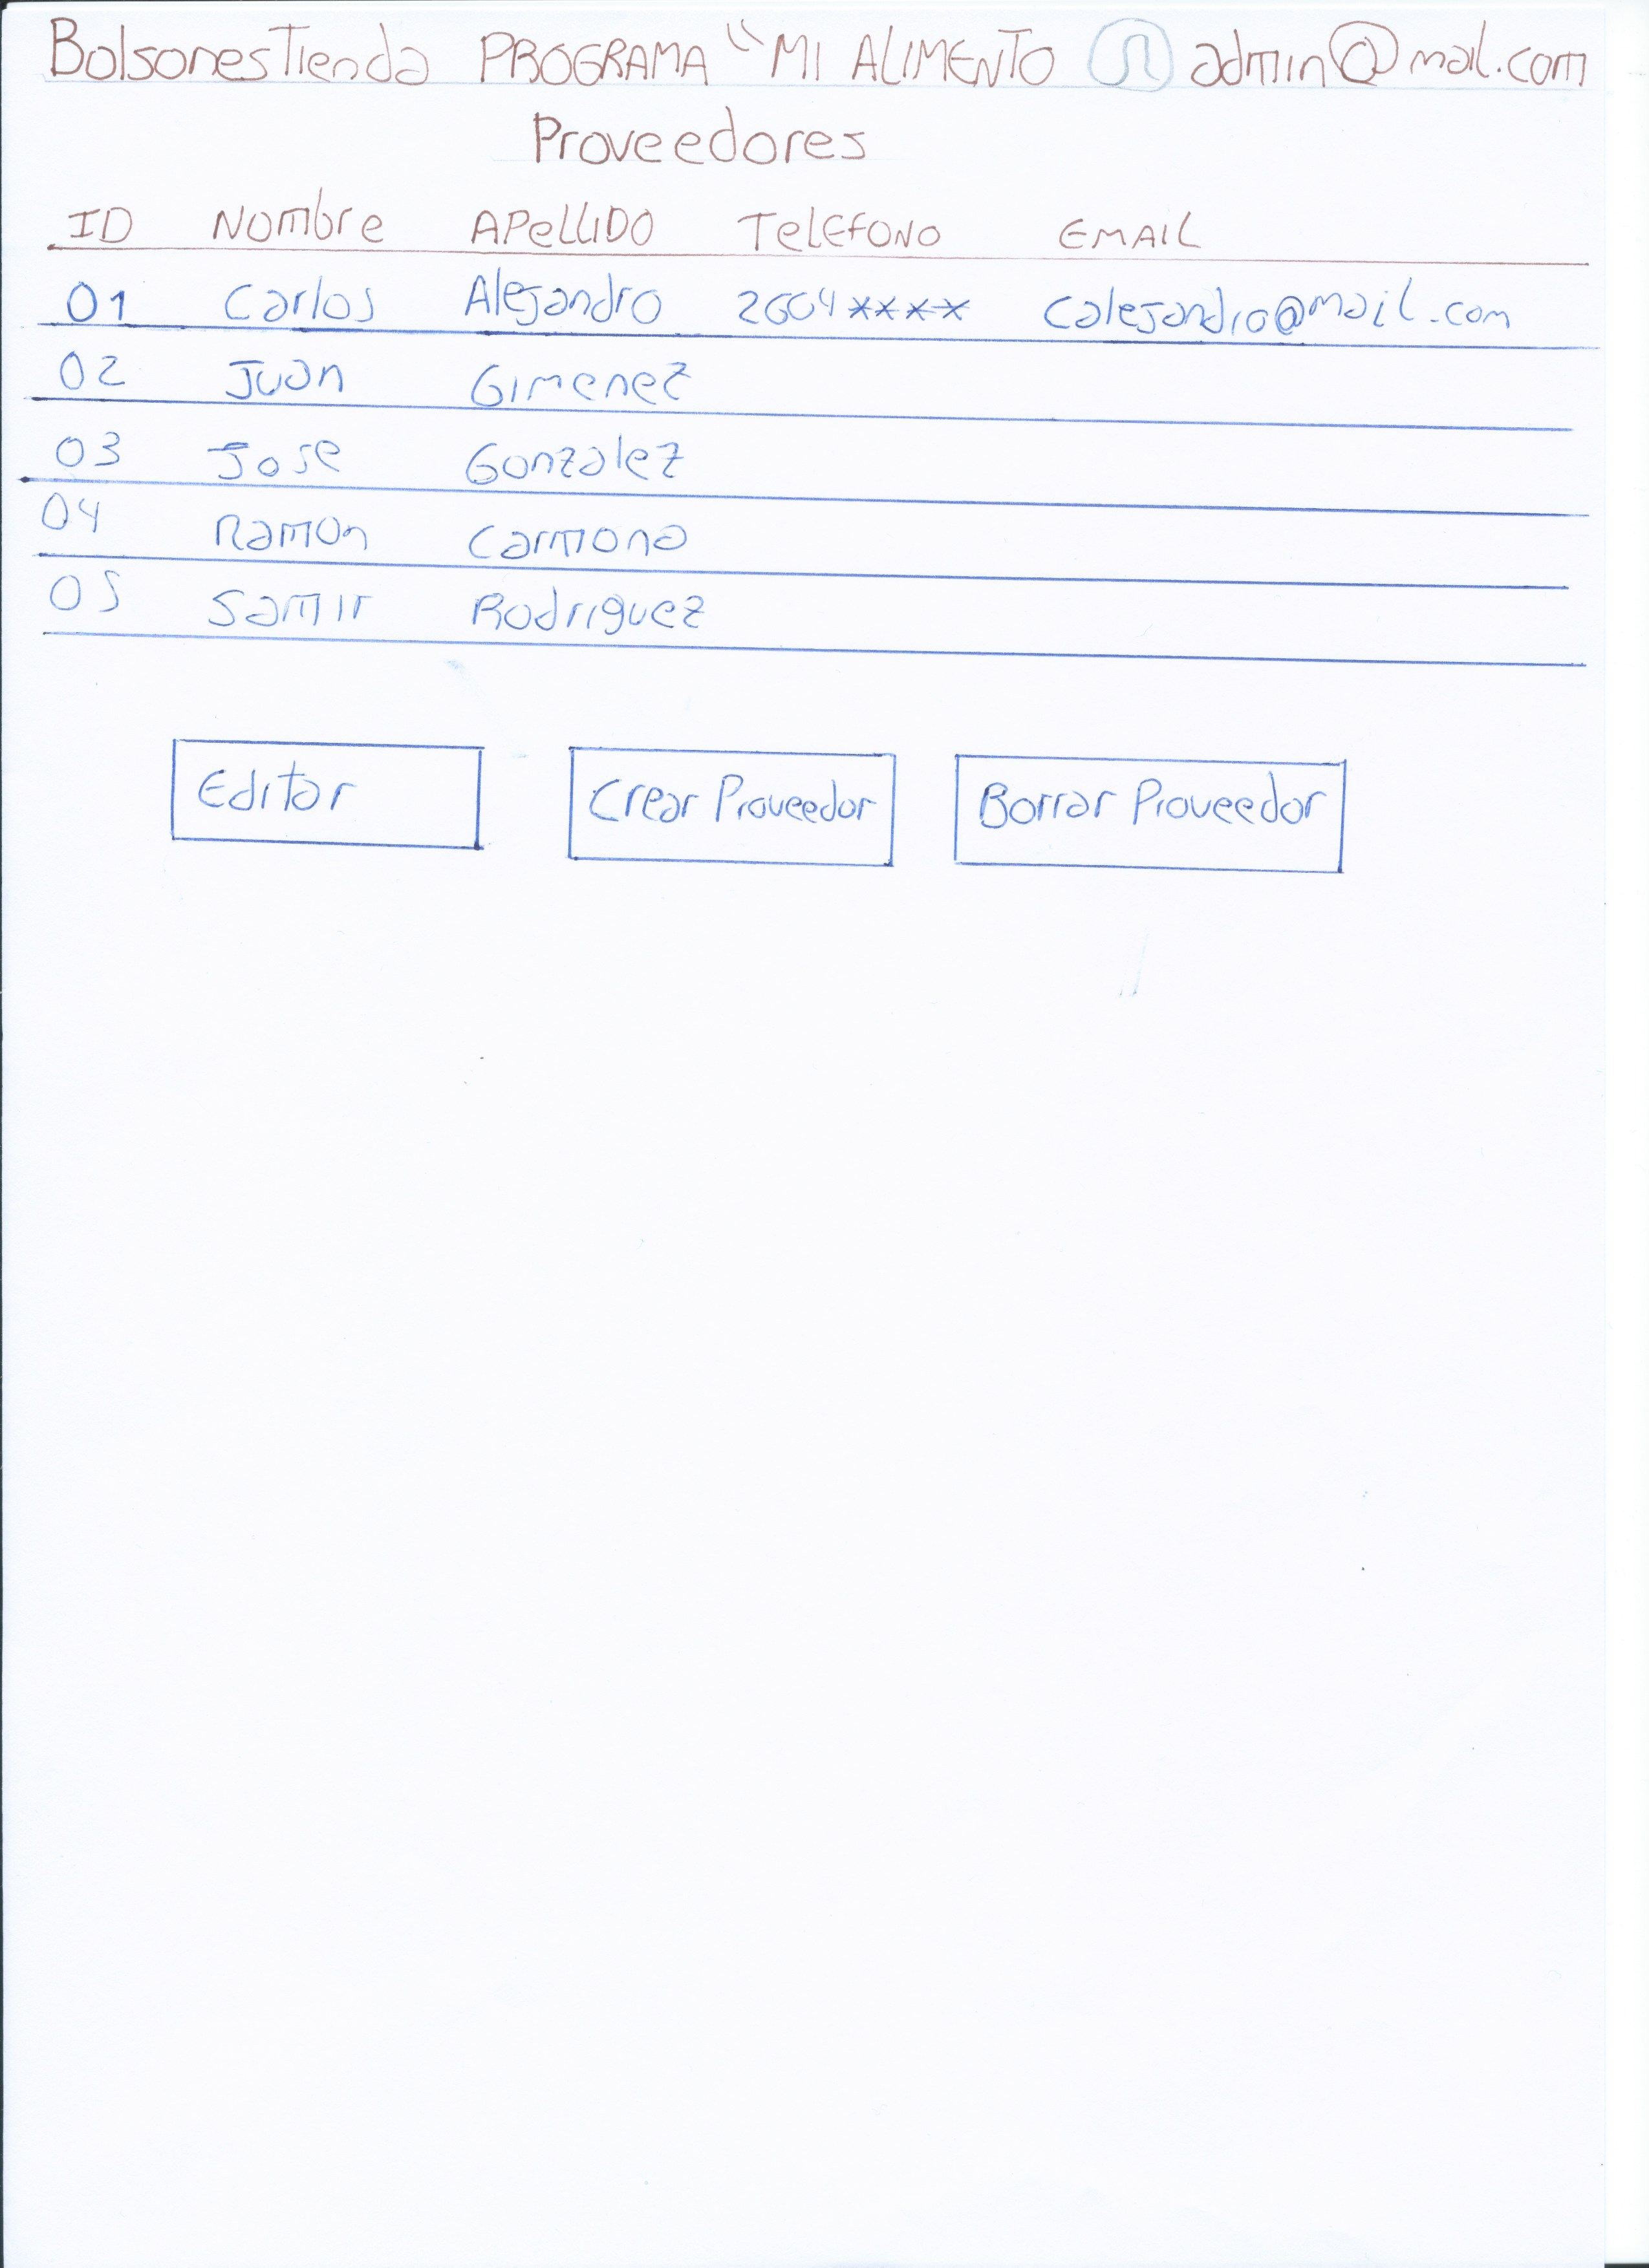 BolsonesTienda PROGRAMA "MI ALIMENTO admin@mail.com
Proveedores
ID Nombre APELLIDO TELEFONO EMAIL
01 Carlos Alejandro 2604**** Calejandro@mail.com
02 Juan Gimenez
03 Jose Gonzalez
04 Ramon Carmona
05 Samir Rodriguez
Editar Crear Proveedor Borrar Proveedor